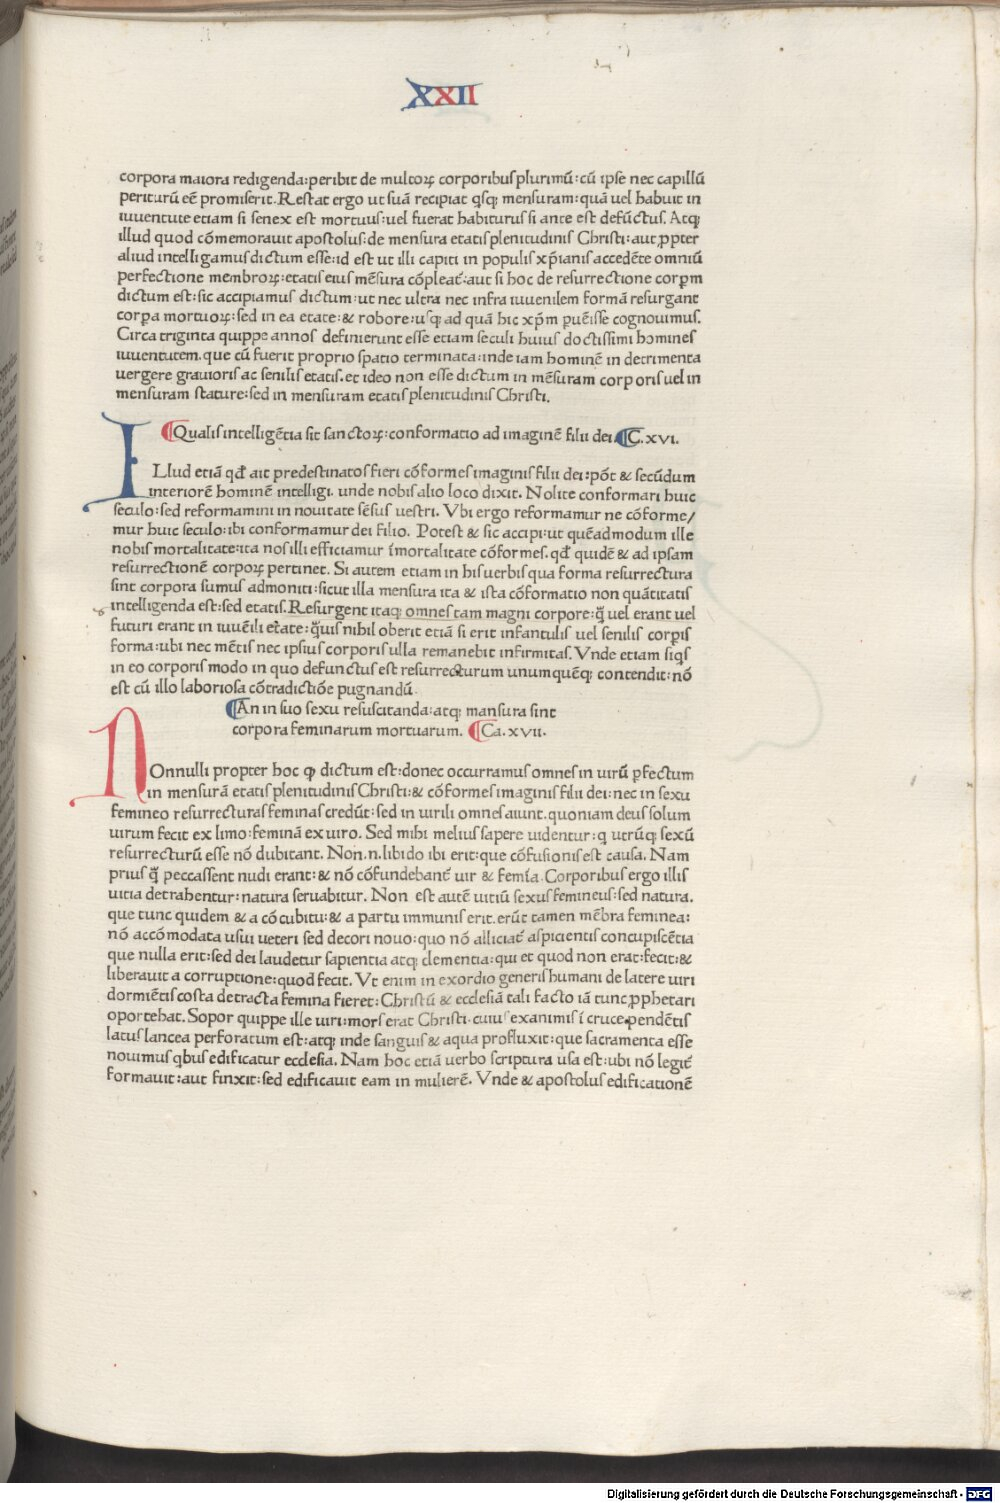 XXII
corpora maiora redigenda:peribit de multoꝝ corporibus plurimū: cū ipse nec capillū
periturū eē promiserit. Restat ergo ut suā recipiat q̇sq; mensuram: quā uel habuit in
iuuentute etiam si senex est mortuus: uel fuerat habiturus si ante est defūctus. Atq;
illud quod cōmemorauit apostolus: de mensura etatis plenitudinis Christi: aut ꝓpter
aliud intelligamus dictum esse: id est ut illi capiti in populis xp̄ianis accedēte omniū
perfectione membroꝝ: etatis eius mēsura cōpleat̄: aut si hoc de resurrectione corpꝝm
dictum est: sic accipiamus dictum: ut nec ultra nec infra iuuenilem formā resurgant
corpa mortuoꝝ: sed in ea etate: & robore: usq; ad quā hic xp̄m ꝑuēisse cognouimus.
Circa triginta quippe annos definierunt esse etiam seculi huius doctissimi homines
iuuentutem. que cū fuerit proprio spatio terminata: inde iam hominē in detrimenta
uergere grauioris ac senilis etatis. et ideo non esse dictum in mēsuram corporis uel in
mensuram stature: sed in mensuram etatis plenitudinis Christi.
¶Qualis intelligētia sit sanctoꝝ: conformatio ad imaginē filii dei. ¶C. xvi.
ILlud etiā qđ ait predestinatos fieri cōformes imaginis filii dei: pōt & secūdum
interiorē hominē intelligi. unde nobis alio loco dixit. Nolite conformari huic
seculo: sed reformamini in nouitate sēsus uestri. Vbi ergo reformamur ne cōforme/
mur huic seculo: ibi conformamur dei filio. Potest & sic accipi: ut quēadmodum ille
nobis mortalitate: ita nos illi efficiamur īmortalitate cōformes. qđ quidē & ad ipsam
resurrectionē corpoꝝ pertinet. Si autem etiam in his uerbis qua forma resurrectura
sint corpora sumus admoniti: sicut illa mensura ita & ista cōformatio non quātitatis
intelligenda est: sed etatis. Resurgent itaq; omnes tam magni corpore: q̄ uel erant uel
futuri erant in iuuēili etate: q̄uis nihil oberit etiā si erit infantulis uel senilis corꝑis
forma: ubi nec mētis nec ipsius corporis ulla remanebit infirmitas. Vnde etiam siq̇s
in eo corporis modo in quo defunctus est resurrecturum unumquēq; contendit: nō
est cū illo laboriosa cōtradictiōe pugnandū.
¶An in suo sexu resuscitanda: atq; mansura sint
corpora feminarum mortuarum. ¶Ca. xvii.
NOnnulli propter hoc ꝙ dictum est: donec occurramus omnes in uirū ꝑfectum
in mensurā etatis plenitudinis Christi: & cōformes imaginis filii dei: nec in sexu
femineo resurrecturas feminas credūt: sed in uirili omnes aiunt. quoniam deus solum
uirum fecit ex limo: feminā ex uiro. Sed mihi melius sapere uidentur: q utrūq; sexū
resurrecturū esse nō dubitant. Non .n. libido ibi erit: que cōfusionis est causa. Nam
prius q̄ peccassent nudi erant: & nō cōfundebant̄ uir & femīa. Corporibus ergo illis
uitia detrahentur: natura seruabitur. Non est autē uitiū sexus femineus: sed natura.
que tunc quidem & a cōcubitu: & a partu immunis erit. erūt tamen mēbra feminea:
nō accōmodata usui ueteri sed decori nouo: quo nō alliciat̄ aspicientis concupiscētia
que nulla erit: sed dei laudetur sapientia atq; clementia: qui et quod non erat: fecit: &
liberauit a corruptione: quod fecit. Vt enim in exordio generis humani de latere uiri
dormiētis costa detracta femina fieret: Christū & ecclesiā tali facto iā tunc ꝓphetari
oportebat. Sopor quippe ille uiri: mors erat Christi. cuius exanimis ī cruce pendētis
latus lancea perforatum est: atq; inde sanguis & aqua profluxit: que sacramenta esse
nouimus qbus edificatur ecclesia. Nam hoc etiā uerbo scriptura usa est: ubi nō legit̄
formauit: aut finxit: sed edificauit eam in mulierē. Vnde & apostolus edificationē
Digitalisierung gefördert durch die Deutsche Forschungsgemeinschaft - DFG